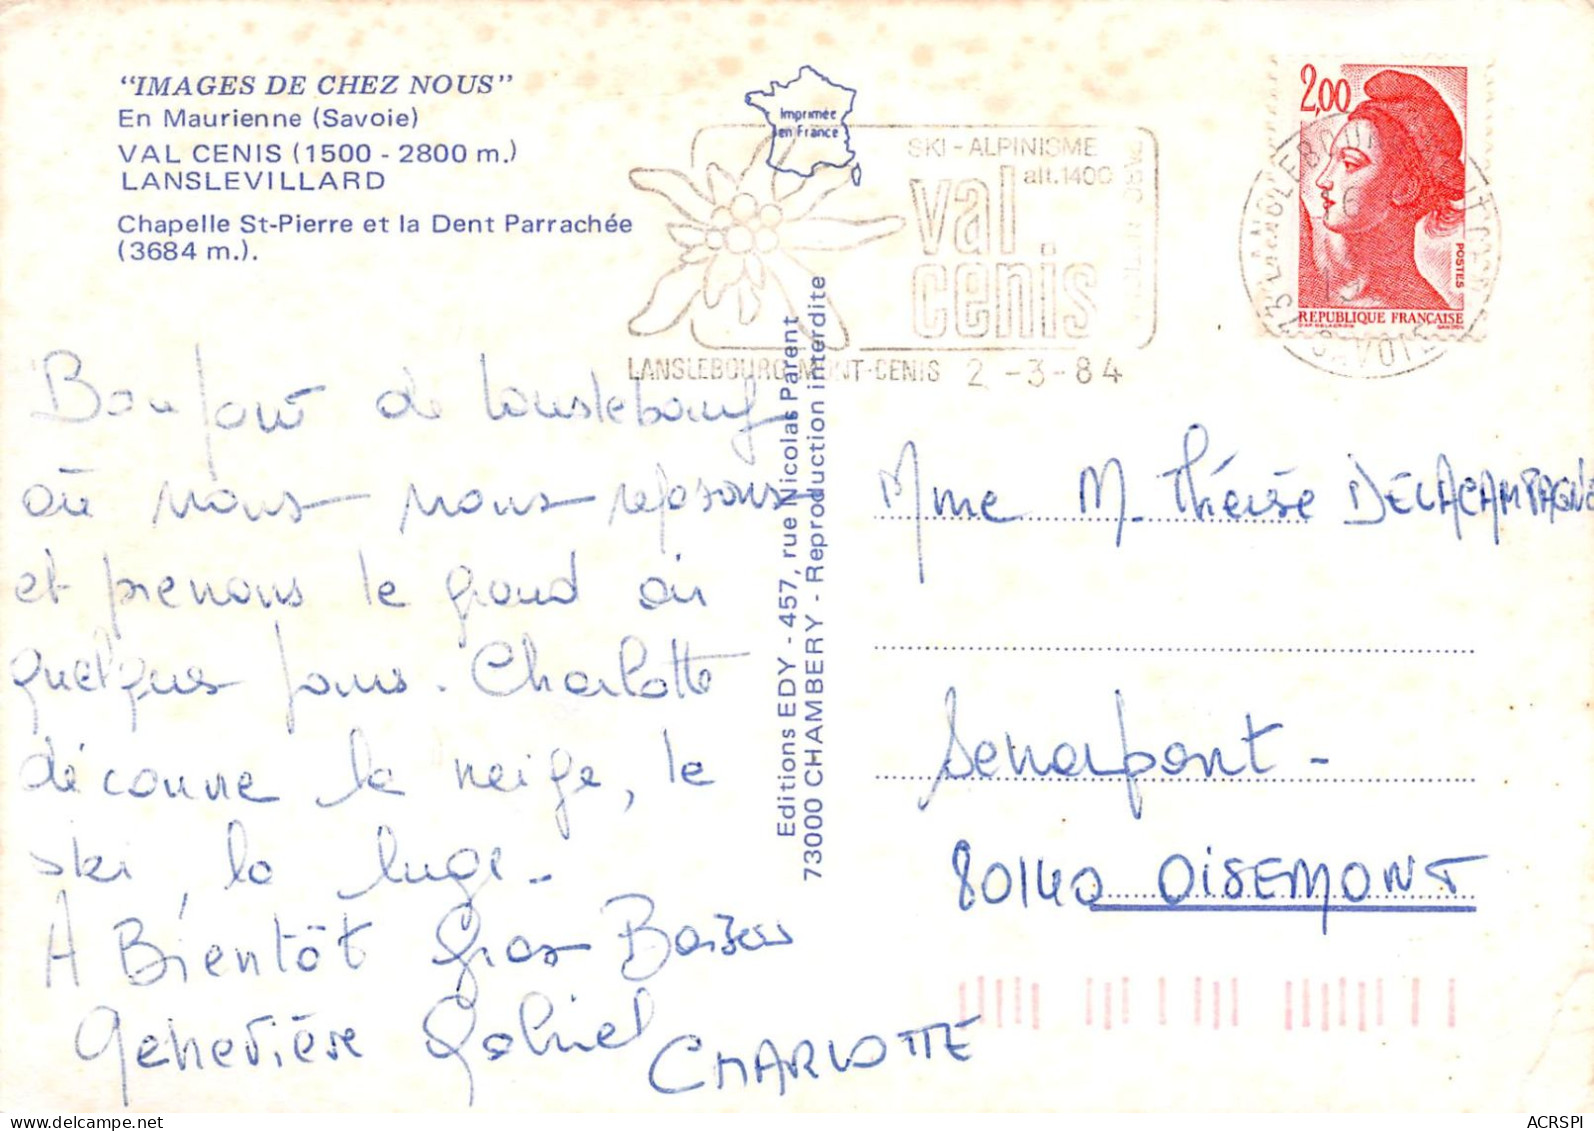 "IMAGES DE CHEZ NOUS"
En Maurienne (Savoie)
VAL CENIS (1500 - 2800 m.)
LANSLEVILLARD
Chapelle St-Pierre et la Dent Parrachée
(3684 m.).
Imprimée
en France
SKI - ALPINISME
alt. 1400
val
cenis
LANSLEBOURG-MONT-CENIS 2 -3-84
2,00
POSTES
REPUBLIQUE FRANÇAISE
73 LANSLEBOURG MONT CENIS
SAVOIE
Bonjour de Lanslebourg
où nous nous reposons
et prenons le grand air
quelques jours. Charlotte
découvre la neige, le
ski, la luge.
A Bientôt Gros Baisers
Geneviève Gabriel
CHARLOTTE
Editions EDY - 457, rue Nicolas Parent
73000 CHAMBERY - Reproduction interdite
Mme M. Thérèse DELACAMPAGNE
Senarpont -
80140 OISEMONT
ACRSPI